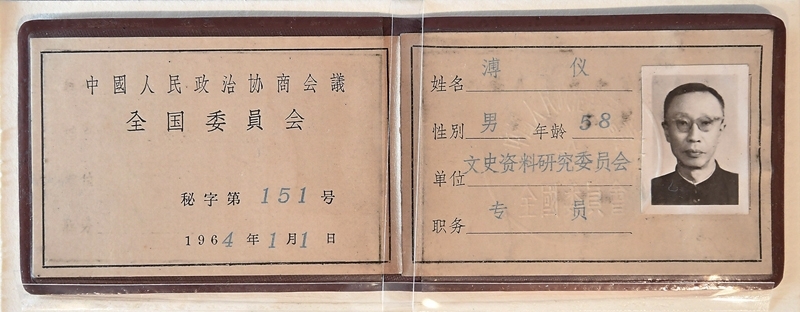 中國人民政治协商会議
全国委員会
秘字第 151 号
1964 年 1 月 1 日
姓名 溥 仪
性別 男 年龄 58
单位 文史资料研究委员会
职务 专 员